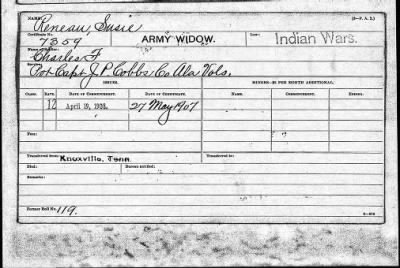 NAME: Reneau, Susie (3-P. A. 2.)
Certificate No. 7359 ARMY WIDOW. Law: Indian Wars.
Name of Soldier: Charles F
Service: Pvt Capt J P Cobbs Co Ala Vols.
ISSUES. MINORS—$2 PER MONTH ADDITIONAL.
CLASS. RATE. DATE OF COMMENCEMENT. DATE OF CERTIFICATE. NAME. COMMENCEMENT. ENDING.
12 April 19, 1908. 27 May 1907
Fees:
Transferred from: Knoxville, Tenn. Transferred to:
Died: Bureau notified:
Remarks:
Former Roll No. 119.